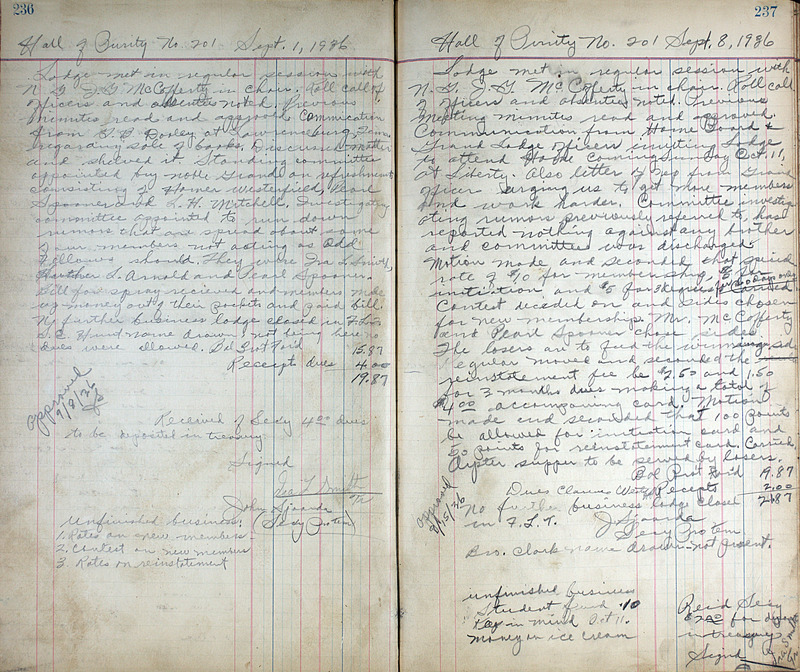 236
Hall of Purity No. 201 Sept. 1, 1936
Lodge met in regular session with
N. G. J. G. McCofferty in chair. Roll call of
officers and absentee noted. Previous
minutes read and approved. Communication
from Dooley at Lawrenceburg
regarding sale of books. Discussed matter
and shelved it. Standing committee
appointed by noble Grand on refreshment
consisting of Homer Westerfield, Pearl
Spooner and L. H. Mitchell. Investigating
committee appointed to run down
rumors that are spread about some
of our members not acting as Odd
Fellows should. They were Ira L.
L. Arnold and Pearl Spooner.
Bill for spray recieved and members made
up money out of their pockets and paid bill.
No further business lodge closed in F. L. T.
name drawn not being here no
dues were allowed. Bal Last Paid 15.87
Receipts dues 4.00
19.87
Approved
9/8/36
Received of Secy 4.00 dues
to be deposited in treasury
Signed
Geo T Smith
John Sjoarda
(Secy Protem)
Unfinished business:
1. Rates on new members
2. Contest on new member
3. Rates on reinstatement
237
Hall of Purity No. 201 Sept. 8, 1936
Lodge met in regular session with
N. G. J. G. McCofferty in chair. Roll call
of officers and absentee noted. Previous
meeting minutes read and approved.
Communication from Home Board &
Grand Lodge officers inviting Lodge
to attend Home Coming Sunday Oct. 11,
at Liberty. Also letter of from Grand
officer urging us to get more members
and work harder. Committee investig
ating rumors previously referred to, has
reported nothing against any brother
and committee was discharged.
Motion made and seconded that special
rate of $10 for membership, $5 for
initiation and $5 for 3 degrees for 60 days only
Contest decided on and sides chosen
for new memberships. Mr. McCofferty
and Pearl Spooner chose sides.
The losers are to feed the winning side
regular moved and seconded the
reinstatement fee be $2.50 and 1.50
for 3 months dues making a total of
$4.00 accompaning card. Motion
made and seconded that 100 points
be allowed for initiation card and
50 points for reinstatement card. Carried.
Oyster supper to be served by losers.
Bal Last Paid 19.87
Dues Receipts 2.00
No further business lodge closed 21.87
in F. L. T. J Sjoarda
Secy Protem
Bro. Clark name drawn - not present.
Approved
9/15/36
Unfinished business
Student fund .10
Keep in mind Oct 11.
Money on ice cream
Rec'd Secy
for dues
in treasury
Signed